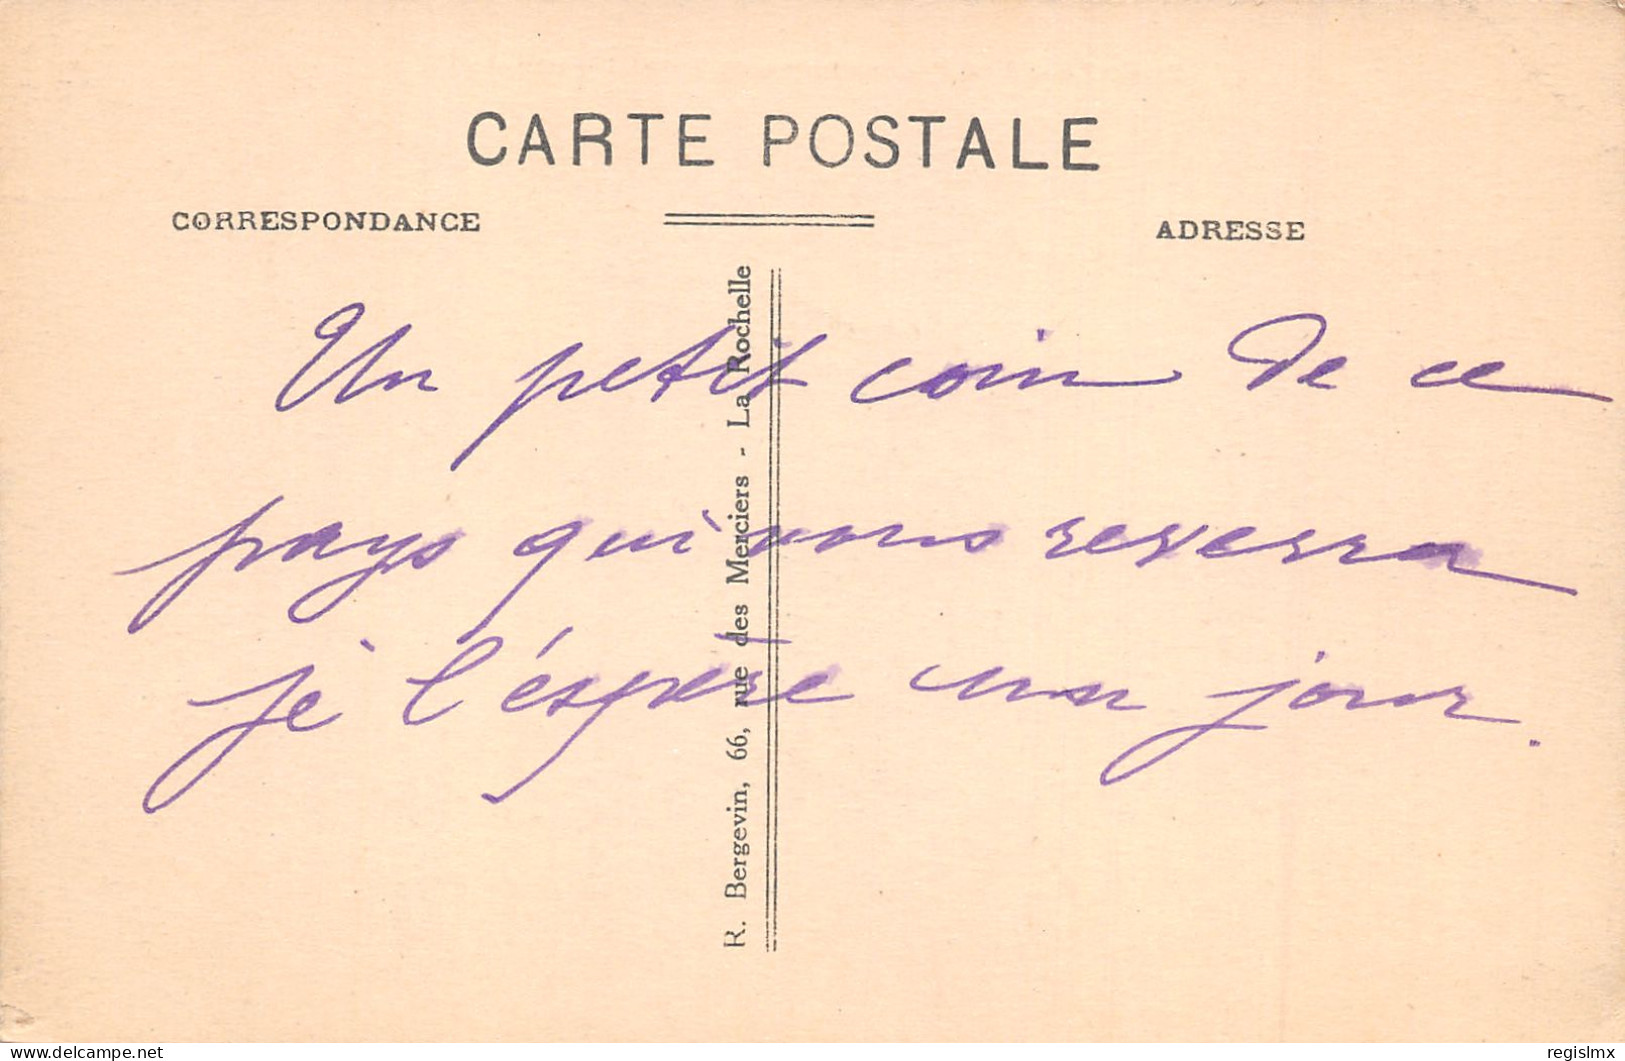 CARTE POSTALE
CORRESPONDANCE
ADRESSE
Un petit coin de ce
pays qui vous reverra
je l'espère un jour.
R. Bergevin, 66, rue des Merciers - La Rochelle
delcampe.net
regislmx